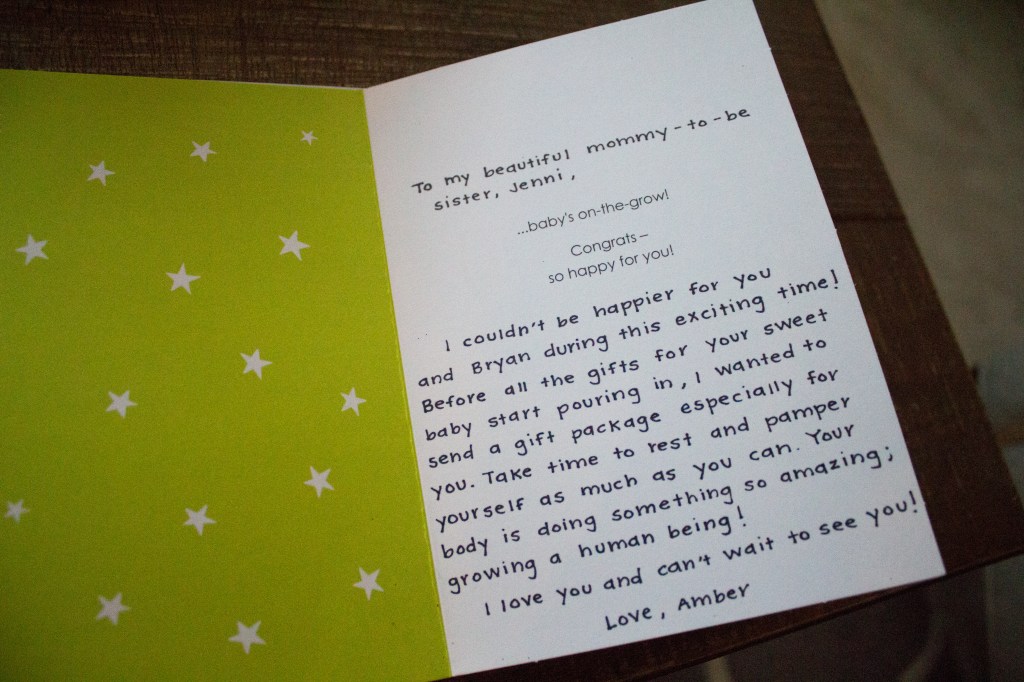 To my beautiful mommy-to-be
sister, Jenni,
...baby's on-the-grow!
Congrats –
so happy for you!
I couldn't be happier for you
and Bryan during this exciting time!
Before all the gifts for your sweet
baby start pouring in, I wanted to
send a gift package especially for
you. Take time to rest and pamper
yourself as much as you can. Your
body is doing something so amazing;
growing a human being!
I love you and can't wait to see you!
Love, Amber